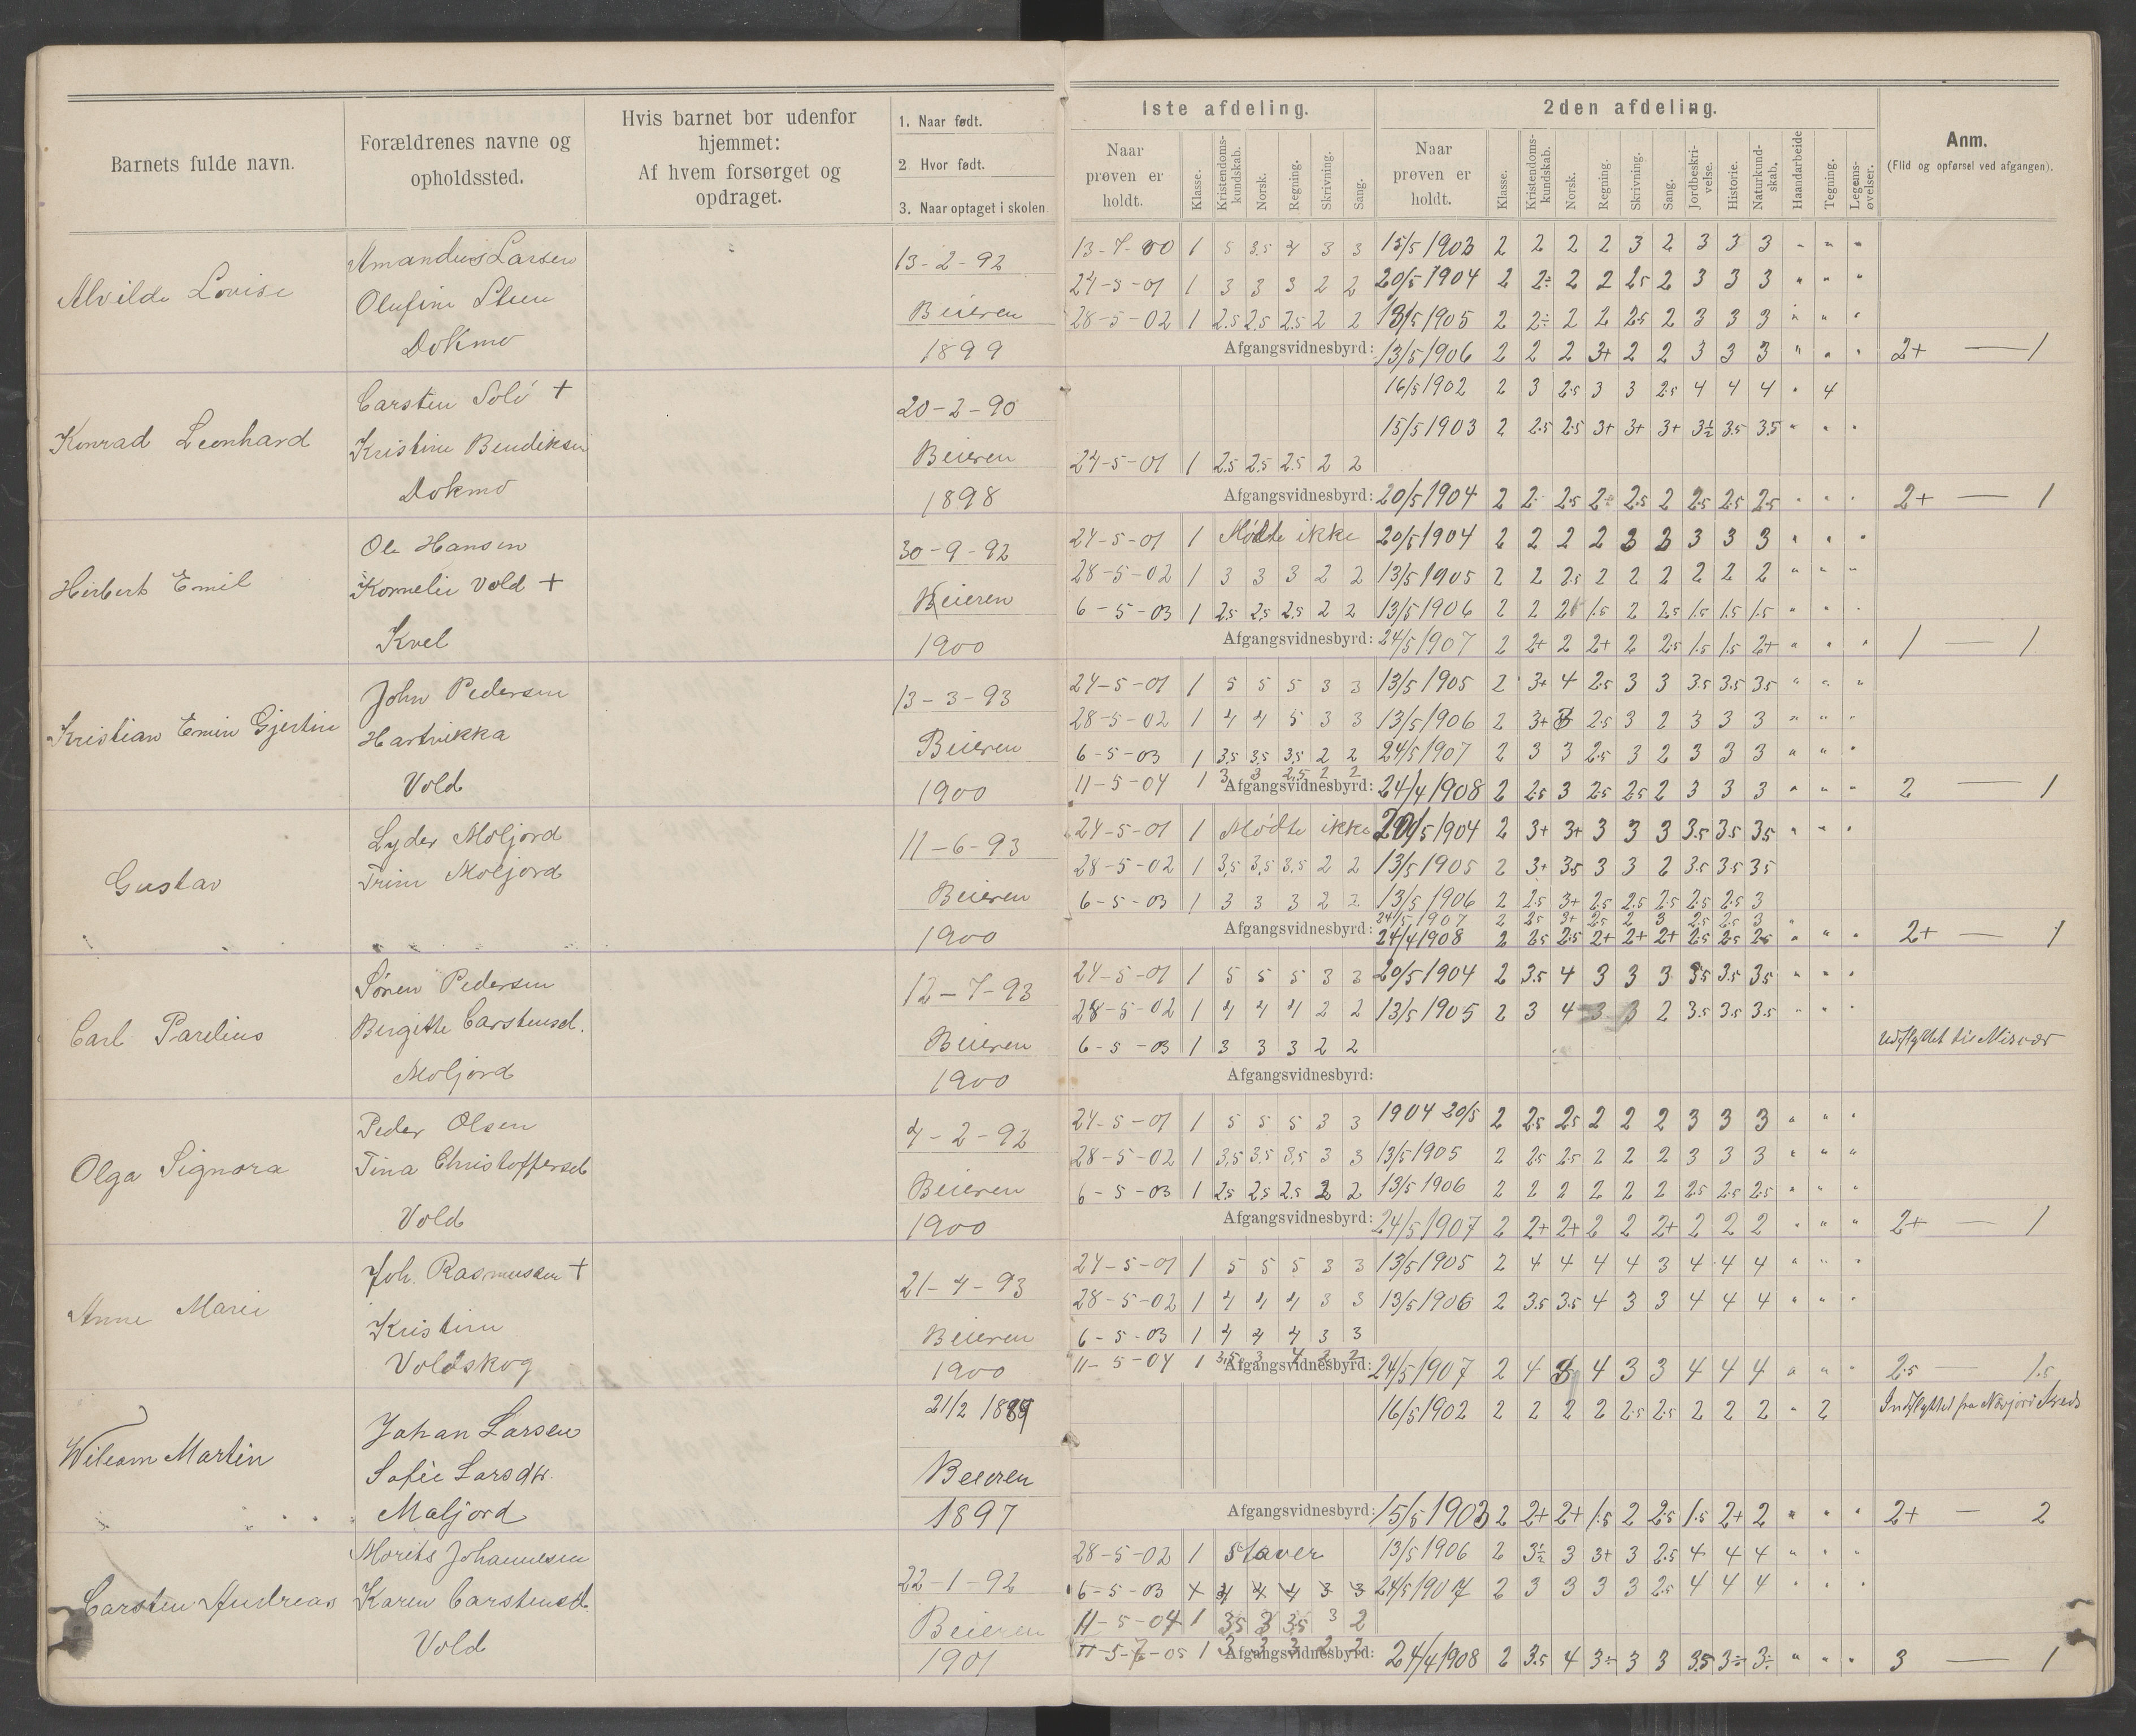 Barnets fulde navn.
Forældrenes navne og opholdssted.
Hvis barnet bor udenfor hjemmet:
Af hvem forsørget og opdraget.
1. Naar født.
2 Hvor født.
3. Naar optaget i skolen
1ste afdeling.
Naar prøven er holdt.
Klasse.
Kristendoms-kundskab.
Norsk.
Regning.
Skrivning.
Sang.
2den afdeling.
Naar prøven er holdt.
Klasse.
Kristendoms-kundskab.
Norsk.
Regning.
Skrivning.
Sang.
Jordbeskri-velse.
Historie.
Naturkund-skab.
Haandarbeide
Tegning.
Legems-øvelser.
Anm.
(Flid og opførsel ved afgangen).
Alvilde Lovise
Amandus Larsen
Olufine Steen
Dokmo
13-2-92
Beieren
1899
13-7-00 1 5 3.5 4 3 3 15/5 1903 2 2 2 2 3 2 3 3 3 " " "
24-5-01 1 3 3 3 2 2 20/5 1904 2 2÷ 2 2 2.5 2 3 3 3 " " "
28-5-02 1 2.5 2.5 2.5 2 2 13/5 1905 2 2÷ 2 2 2.5 2 3 3 3 " " "
Afgangsvidnesbyrd: 13/5 1906 2 2 2 3+ 2 2 3 3 3 " " " 2+ — 1
Konrad Leonhard
Carsten Solo +
Kristine Bendiksen
Dokmo
20-2-90
Beieren
1898
16/5 1902 2 3 2.5 3 3 2.5 4 4 4 " 4
15/5 1903 2 2.5 2.5 3+ 3+ 3+ 3½ 3.5 3.5 " " "
24-5-01 1 2.5 2.5 2.5 2 2
Afgangsvidnesbyrd: 20/5 1904 2 2÷ 2.5 2÷ 2.5 2 2.5 2.5 2.5 " " " 2+ — 1
Herbert Emil
Ole Hansen
Kornelie Vold +
Kvel
30-9-92
Beieren
1900
24-5-01 1 Mødte ikke 20/5 1904 2 2 2 2 3 3 3 3 3 " " "
28-5-02 1 3 3 3 2 2 13/5 1905 2 2 2.5 2 2 2 2 2 2 " " "
6-5-03 1 2.5 2.5 2.5 2 2 13/5 1906 2 2 2 1.5 2 2.5 1.5 1.5 1.5 " " "
Afgangsvidnesbyrd: 24/5 1907 2 2+ 2 2+ 2 2.5 1.5 1.5 2+ " " " 1 — 1
Kristian Emin Gjertin
John Pedersen
Hartvikka
Vold
13-3-93
Beieren
1900
24-5-01 1 5 5 5 3 3 13/5 1905 2 3+ 4 2.5 3 3 3.5 3.5 3.5 " " "
28-5-02 1 4 4 5 3 3 13/5 1906 2 3+ 3 2.5 3 2 3 3 3 " " "
6-5-03 1 3.5 3.5 3.5 2 2 24/5 1907 2 3 3 2.5 3 2 3 3 3 " " "
11-5-04 1 3 3 2.5 2 2
Afgangsvidnesbyrd: 24/4 1908 2 2.5 3 2.5 2.5 2 3 3 3 " " " 2 — 1
Gustav
Lyder Moljord
Trine Moljord
11-6-93
Beieren
1900
24-5-01 1 Mødte ikke 20/5 1904 2 3+ 3+ 3 3 3 3.5 3.5 3.5 " " "
28-5-02 1 3.5 3.5 3.5 2 2 13/5 1905 2 3+ 3.5 3 3 2 3.5 3.5 3.5
6-5-03 1 3 3 3 2 2 13/5 1906 2 2.5 3+ 2.5 2.5 2.5 2.5 2.5 3
24/5 1907 2 2.5 3+ 2.5 2 3 2.5 2.5 3 "
Afgangsvidnesbyrd: 24/4 1908 2 2.5 2.5 2+ 2+ 2+ 2.5 2.5 2.5 " " " 2+ — 1
Carl Parelius
Søren Pedersen
Bergitte Carstensd.
Moljord
12-7-93
Beieren
1900
24-5-01 1 5 5 5 3 3 20/5 1904 2 3.5 4 3 3 3 3.5 3.5 3.5 " " "
28-5-02 1 4 4 4 2 2 13/5 1905 2 3 4 3 3 2 3.5 3.5 3.5 " " "
6-5-03 1 3 3 3 2 2
Udflyttet til Misvær
Afgangsvidnesbyrd:
Olga Signora
Peder Olsen
Tina Christoffersd.
Vold
4-2-92
Beieren
1900
24-5-01 1 5 5 5 3 3 1904 20/5 2 2.5 2.5 2 2 2 3 3 3 " " "
28-5-02 1 3.5 3.5 3.5 3 3 13/5 1905 2 2.5 2.5 2 2 2 3 3 3 " " "
6-5-03 1 2.5 2.5 2.5 2 2 13/5 1906 2 2 2 2 2 2 2.5 2.5 2.5 " " "
Afgangsvidnesbyrd: 24/5 1907 2 2+ 2+ 2 2 2+ 2 2 2 " " " 2+ — 1
Anne Marie
Joh. Rasmussen +
Kristine
Voldskog
21-4-93
Beieren
1900
24-5-01 1 5 5 5 3 3 13/5 1905 2 4 4 4 4 3 4 4 4 " " "
28-5-02 1 4 4 4 3 3 13/5 1906 2 3.5 3.5 4 3 3 4 4 4 " " "
6-5-03 1 4 4 4 3 3
11-5-04 1 3.5 3 4 2 2
Afgangsvidnesbyrd: 24/5 1907 2 4 3 4 3 3 4 4 4 " " " 2.5 — 1.5
Wileam Martin
Johan Larsen
Sofie Larsdtr.
Moljord
21/2 1889
Beieren
1897
16/5 1902 2 2 2 2 2.5 2.5 2 2 2 " 2 Indflyttet fra Kreds
Afgangsvidnesbyrd: 15/5 1903 2 2+ 2+ 1.5 2 2.5 1.5 2+ 2 " " " 2+ — 2
Carsten Andreas
Morits Johannesen
Karen Carstensd.
Vold
22-1-92
Beieren
1901
28-5-02 1 staver 13/5 1906 2 3½ 3 3+ 3 2.5 4 4 4 " " "
6-5-03 x 4 4 4 3 3 24/5 1907 2 3 3 3 3 2.5 4 4 4 " " "
11-5-04 1 3.5 3 3.5 3 2
5-7-05 1 3 3 3 2 2
Afgangsvidnesbyrd: 24/4 1908 2 3.5 4 3÷ 3 3 3.5 3÷ 3÷ " " " 3 — 1